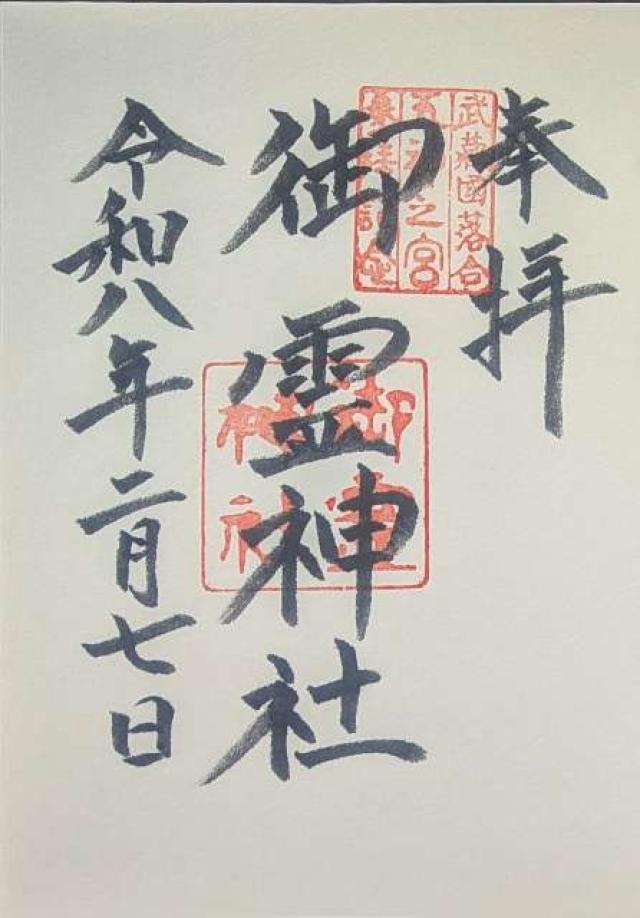 奉拝
武蔵國落合
之宮
御霊神社
御霊神社
令和八年二月七日